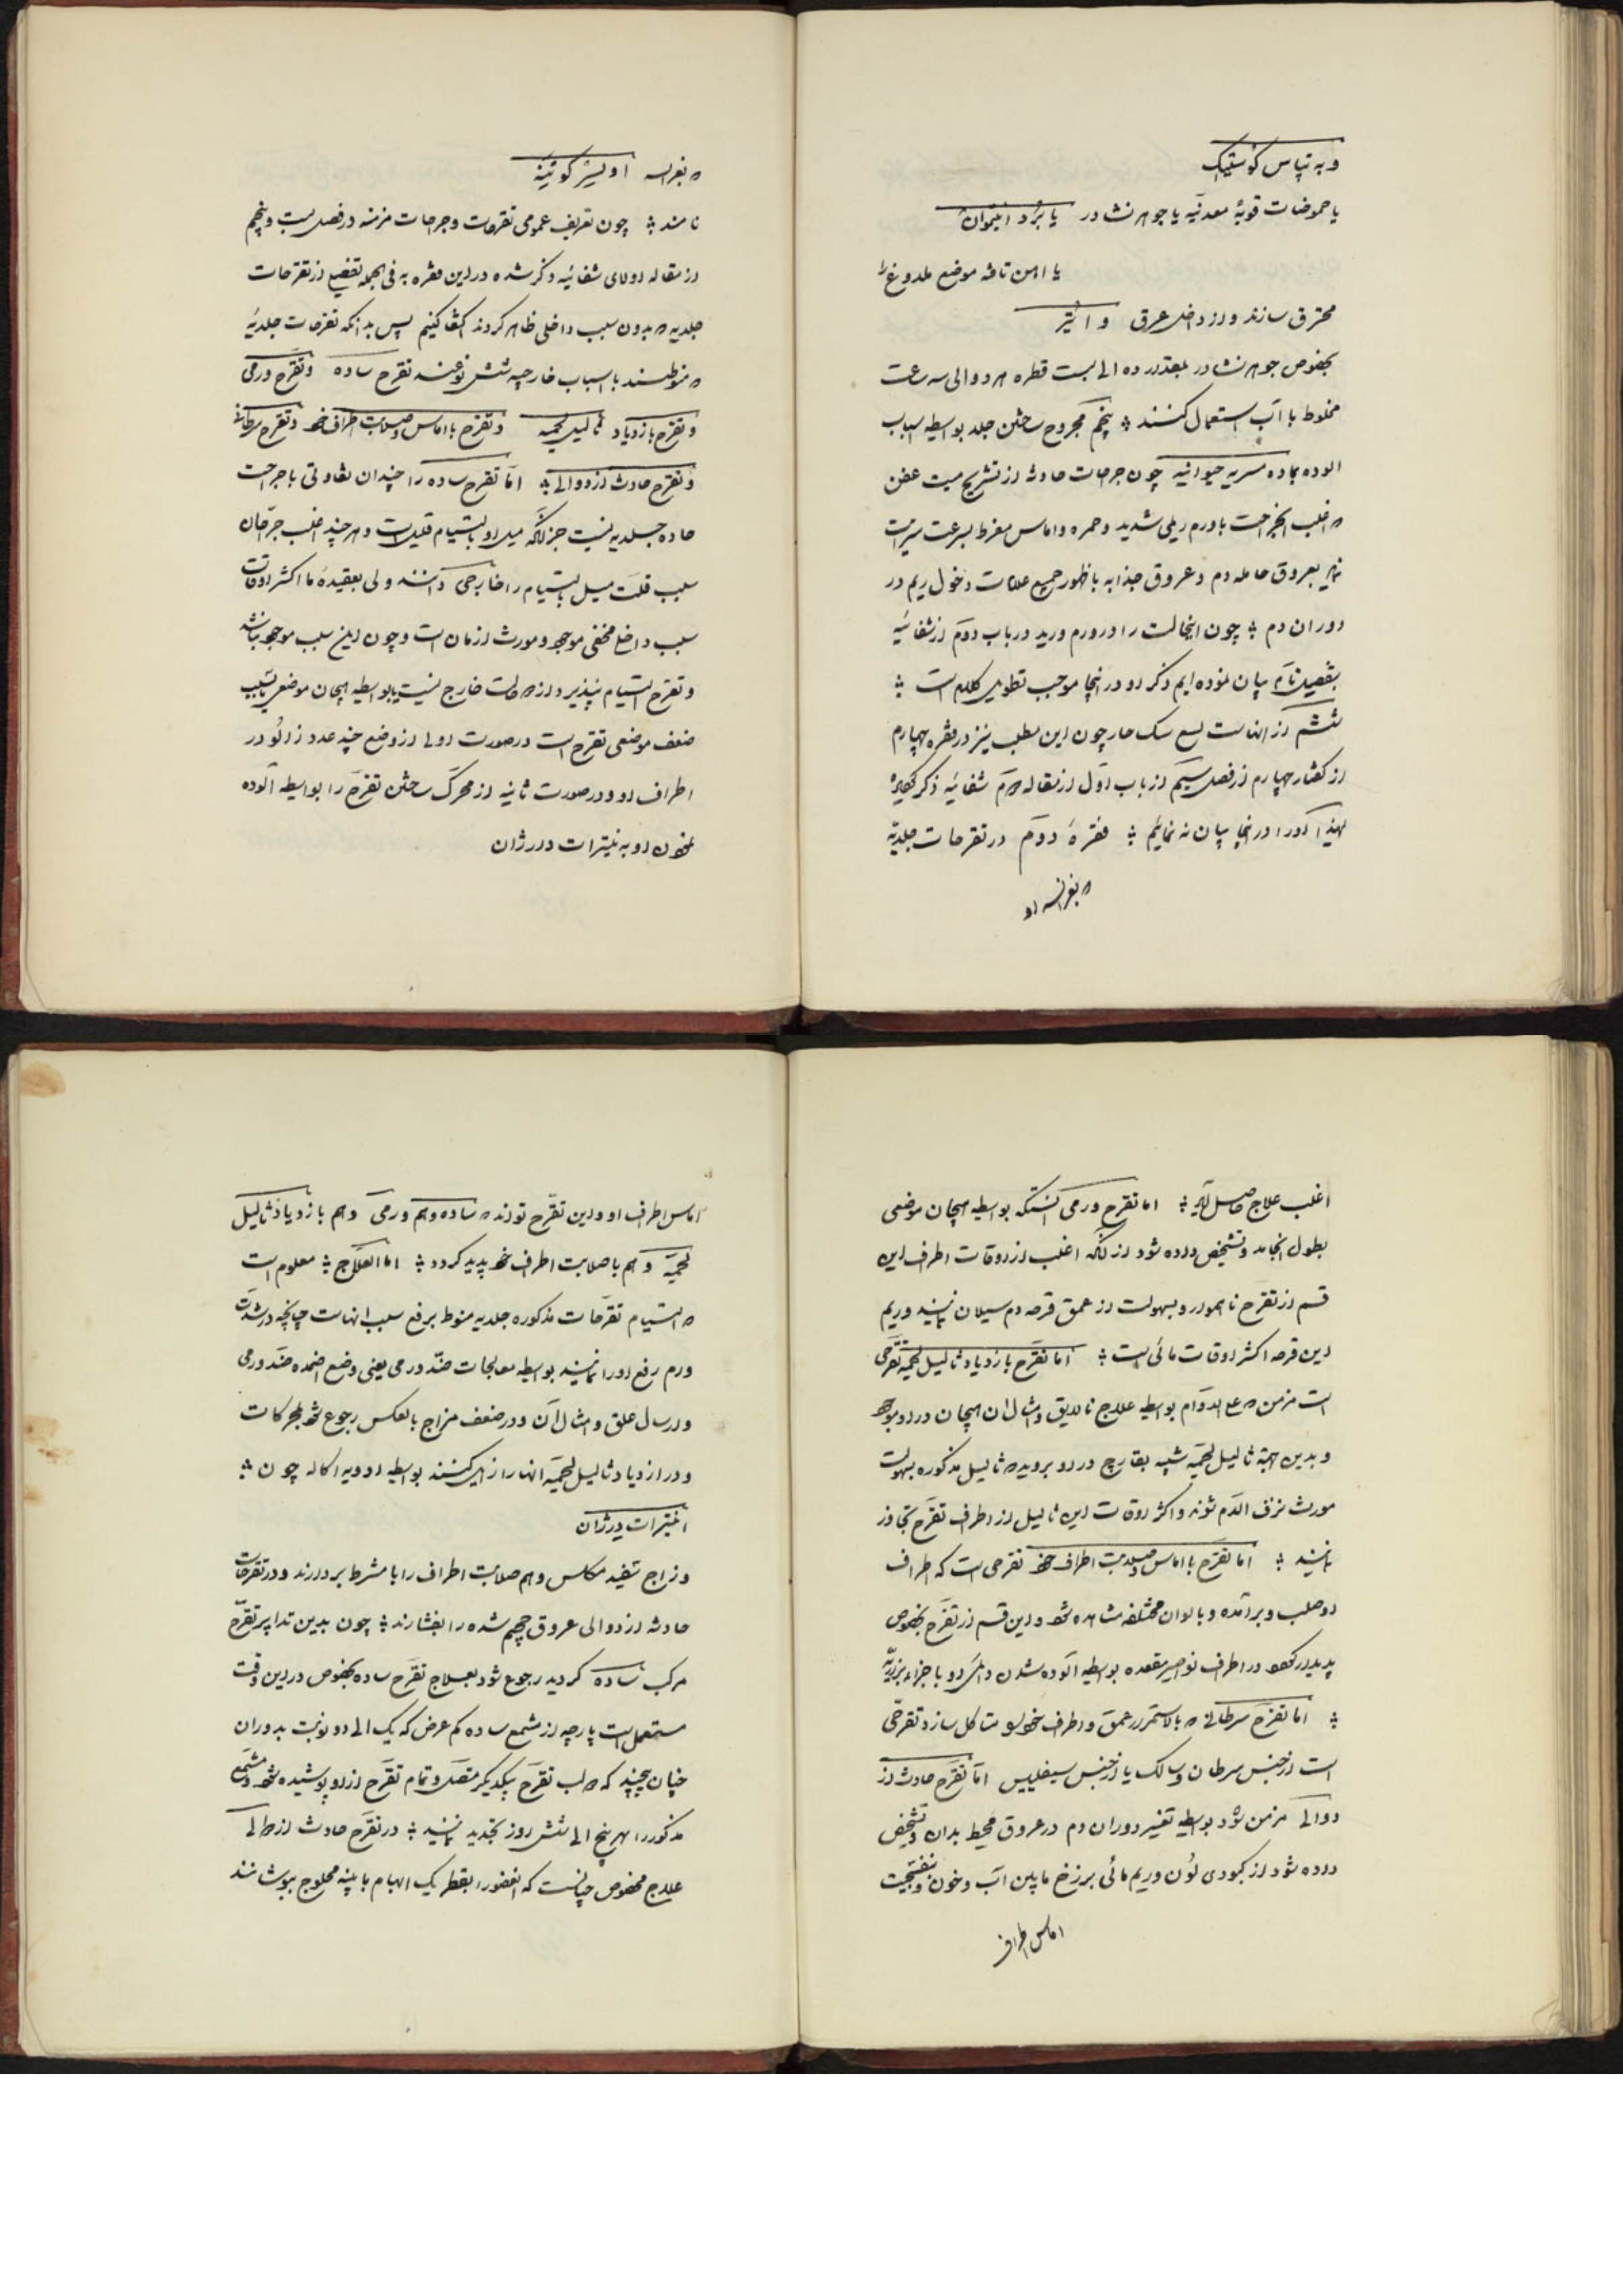 و به تپاس کوستیک
یا حموضات قویهٔ معدنیه یا جوهر نشادر یا بُرُد انتیموان
یا آهن تافته موضع ملدوغ را
محترق سازند و از داخل عرق و اتیر
بخصوص جوهر نشادر بقدر ده الی بیست قطره هر دو الی سه ساعت
مخلوط با آب استعمال کنند ؛ پنجم مجروح ساختن جلد بواسطه اسباب
آلوده بماده مسریه حیوانیه چون جراحات حادثه از تشریح میت عفن
که اغلب این جراحت با ورم ریمی شدید و حمره و اماس مفرط بسرعت سرایت
نماید بعروق حامله دم و عروق جذابه با ظهور جمیع علامات دخول ریم در
دوران دم ؛ چون اینحالت را در ورم ورید در باب دوم از شفائیه
بتفصیل تام بیان نموده ایم ذکر او در اینجا موجب تطویل کلام است ؛
ششم از انهاست لسع سک هار چون این مطلب نیز در فقره چهارم
از گفتار چهارم از فصل سیم از باب اول از مقاله دوم شفائیه ذکر گردیده
لهذا او را در اینجا بیان نه نمائیم ؛ فقرهٔ دوم در تقرحات جلدیه
که بفرانسه او
که بفرانسه اولیسر کوتینه
نامند ؛ چون تعریف عمومی تقرحات و جراحات مزمنه در فصل بیست و پنجم
از مقاله اولای شفائیه ذکر شده در این فقره به فی الجمله تفصیلی از تقرحات
جلدیه که بدون سبب داخلی ظاهر کردند اکتفا کنیم پس بدانکه تقرحات جلدیه
که منوطستند با اسباب خارجیه شش نوعند تقرح ساده و تقرح ورمی
و تقرح بازدیاد ثالیل لحمیه و تقرح با اماس و صلابت اطراف خود و تقرح سرطانی
و تقرح حادث از دوالی ؛ اما تقرح ساده را چندان تفاوتی با جراحت
حاده جلدیه نیست جز آنکه میل او بالتیام قلیل است و هر چند اغلب جراحان
سبب قلت میل بالتیام را خارجی دانند ولی بعقیدهٔ ما اکثر اوقات
سبب داخلی مخفی موجود و مورث ازمان است و چون این سبب موجود نباشد
و تقرح التیام نپذیرد از دو حالت خارج نیست یا بواسطه هیجان موضعی یا بسبب
ضعف موضعی تقرح است در صورت اولی از وضع چند عدد زالو در
اطراف او و در صورت ثانیه از محرک ساختن تقرح را بواسطه آلوده
نمودن او به نیترات دارژان
اغلب علاج حاصل آید ؛ اما تقرح ورمی آنستکه بواسطه هیجان موضعی
بطول انجامد و تشخیص داده شود از آنکه اغلب از اوقات اطراف این
قسم از تقرح ناهموار و بسهولت از عمق قرحه دم سیلان نماید و ریم
این قرحه اکثر اوقات مائی است ؛ اما تقرح بازدیاد ثالیل لحمیه تقرحی
است مزمن که علی الدوام بواسطه علاج نالایق و امثال ان هیجان در او موجود
و بدین جهة ثالیل لحمیه شبیه بقارچ در او بروید که ثالیل مذکوره بسهولت
مورث نزف الدم شوند و اکثر اوقات این ثالیل از اطراف تقرح تجاوز
نمایند ؛ اما تقرح با اماس و صلابت اطراف خود تقرحی است که اطراف
او صلب و بر آمده و بالوان مختلفه مشاهده شود و این قسم از تقرح بخصوص
پدیدار گردد در اطراف نواصیر مقعده بواسطه آلوده شدن دائمی او با جزاء برازیه
؛ اما تقرح سرطانی که بالاستمرار عمق و اطراف خود را متاکل سازد تقرحی
است از جنس سرطان و سالک یا از جنس سیفلیس اما تقرح حادث از
دوالی مزمن شود بواسطه تغییر دوران دم در عروق محیط بدان و تشخیص
داده شود از کبودی لون و ریم مائی برزخ مابین آب و خون و بنفسجیت
اماس اطراف
اماس اطراف او و این تقرح تواند که ساده و هم ورمی و هم بازدیاد ثالیل
لحمیه و هم با صلابت اطراف خود پدید گردد ؛ اما العلاج ؛ معلوم است
که التیام تقرحات مذکوره جلدیه منوط برفع سبب انهاست چنانچه در شدت
ورم رفع او را نمایند بواسطه معالجات ضد ورمی یعنی وضع اضمده ضد ورمی
و ارسال علق و امثال آن و در ضعف مزاج بالعکس رجوع شود بمحرکات
و در ازدیاد ثالیل لحمیه انها را زایل کنند بواسطه ادویه اکاله چون ؛
انیترات دارژان
و زاج سفید مکلس و هم صلابت اطراف را با مشرط بردارند و در تقرحات
حادثه از دوالی عروق حجیم شده را بفشارند ؛ چون بدین تدابیر تقرح
مرکب ساده گردید رجوع شود بعلاج تقرح ساده بخصوص در این وقت
مستعمل است پارچه از مشمع ساده کم عرض که یک الی دو نوبت بدوران
چنان پیچند که دو لب تقرح بیکدیگر متصل و تمام تقرح از او پوشیده شود و مشمع
مذکور را هر پنج الی شش روز تجدید نمایند ؛ در تقرح حادث از دوالی
علاج مخصوص چنانست که العضو را بقطر یک ابهام با پنبه محلوج بپوشانند